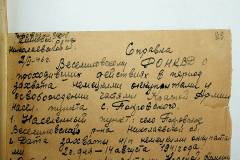 Николаевской об.
Справка
Веселиновскому РО НКВД о
проходивших действиях в период
захвата немецкими оккупантами и
освобождении частями Красной Армии
нас. пункта с. Покровского.
1. Населенный пункт: село Покровка
Веселиновского р-на Николаевской об.
2. Дата захвата н/п немецкими оккупантами
14 августа 1941 года.